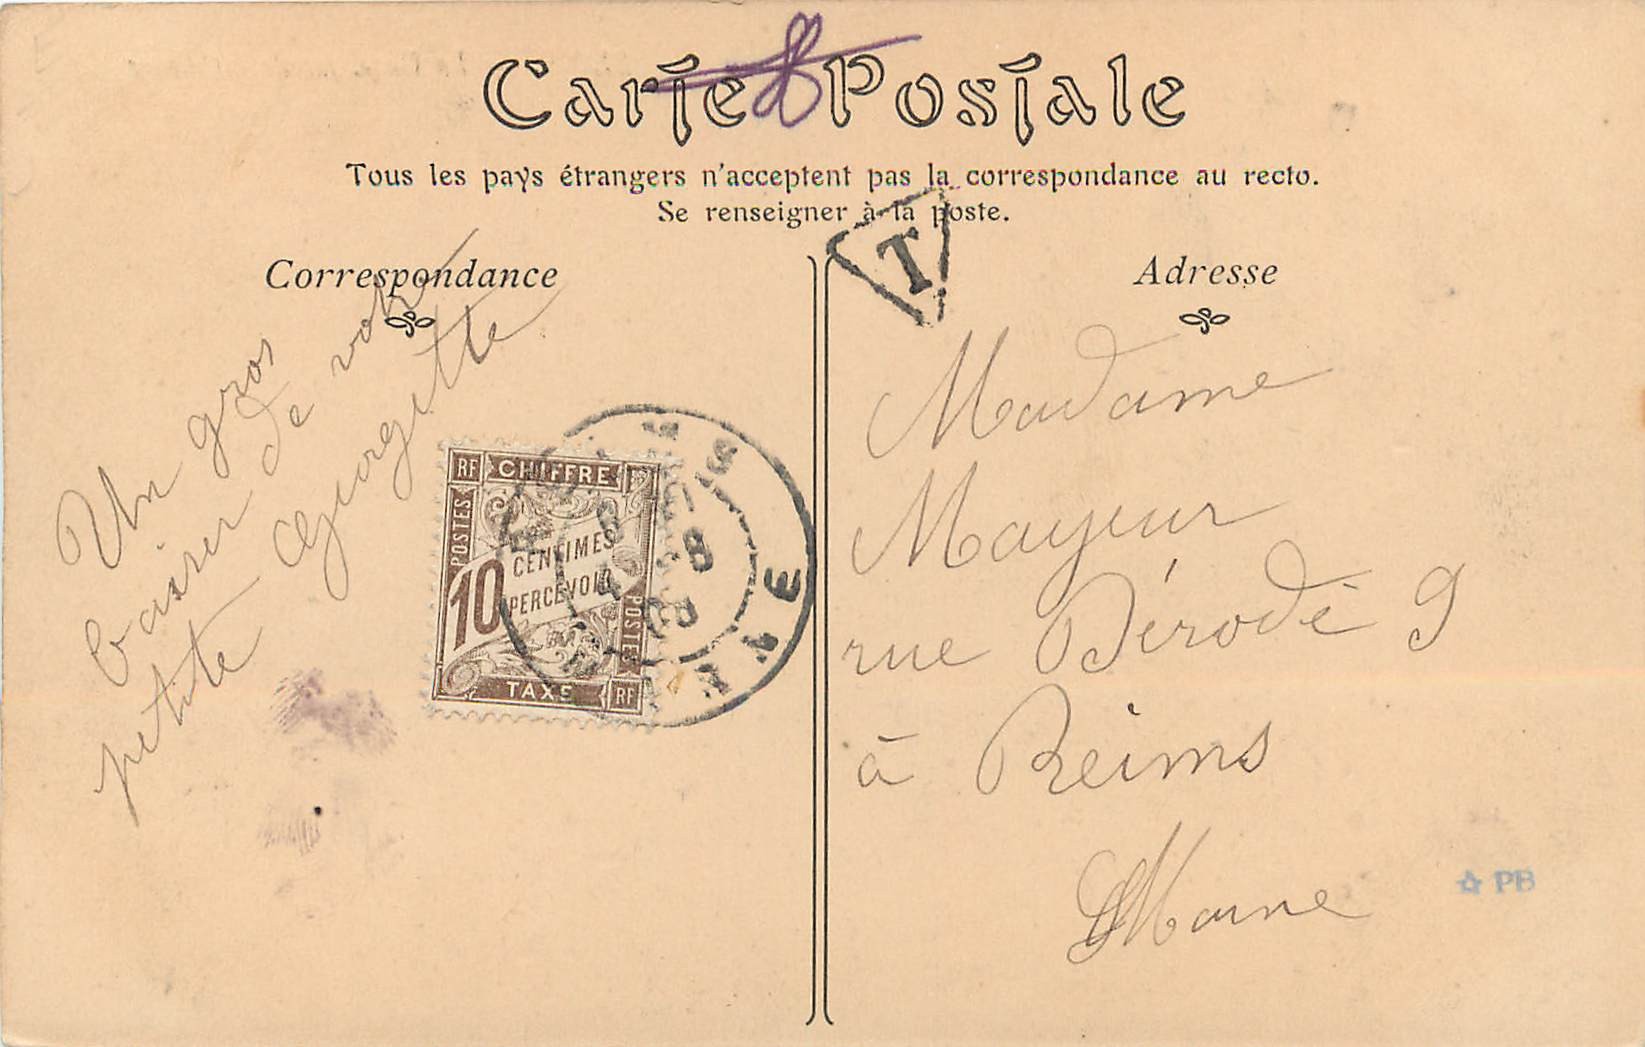 Carte Postale
Tous les pays étrangers n'acceptent pas la correspondance au recto.
Se renseigner à la poste.
Correspondance
Adresse
T
Un gros
baiser de votre
petite Georgette
RF CHIFFRE
POSTES
10 CENTIMES
PERCEVOIR
POSTES
TAXE RF
REIMS
MARNE
Madame
Mayeur
rue Dérodé 9
à Reims
Marne
☆ PB